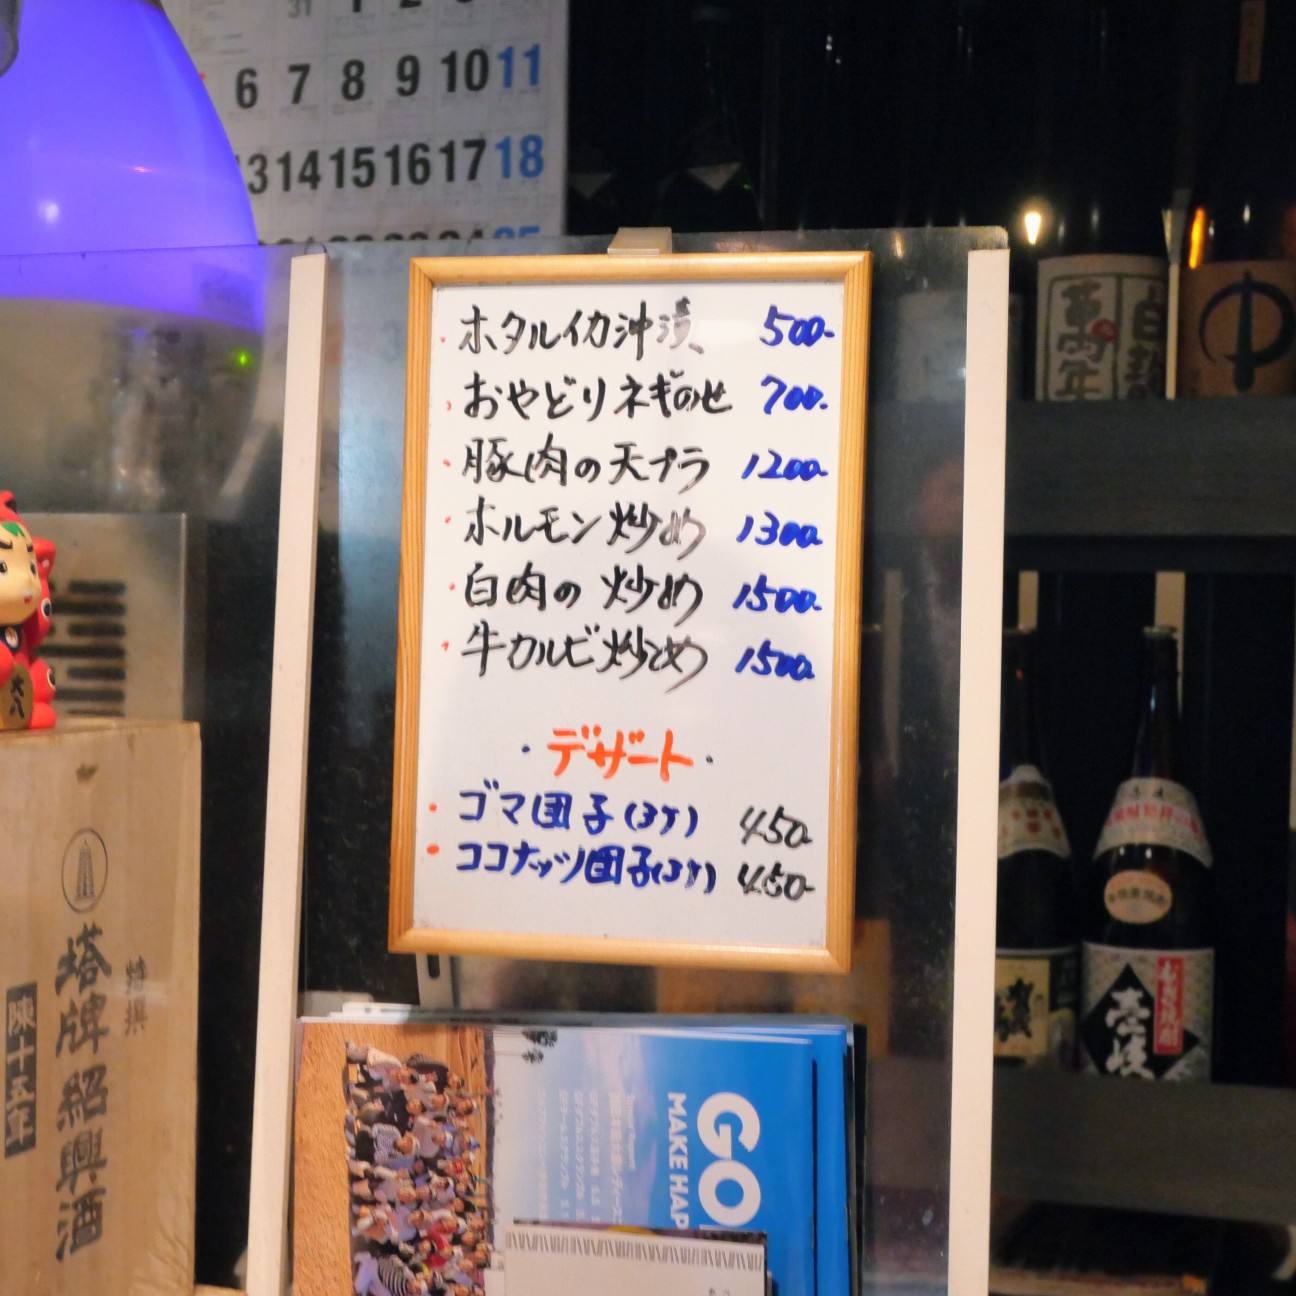 31 1 2 3
6 7 8 9 10 11
13 14 15 16 17 18
ホタルイカ沖漬 500-
おやどりネギのせ 700-
豚肉の天プラ 1200-
ホルモン炒め 1300-
白肉の炒め 1500-
牛カルビ炒め 1500-
・デザート・
ゴマ団子(3ケ) 450-
ココナッツ団子(3ケ) 450-
萬年
白麹
中
大八
特撰
塔牌紹興酒
陳十五年
壱岐
GO
MAKE HAP